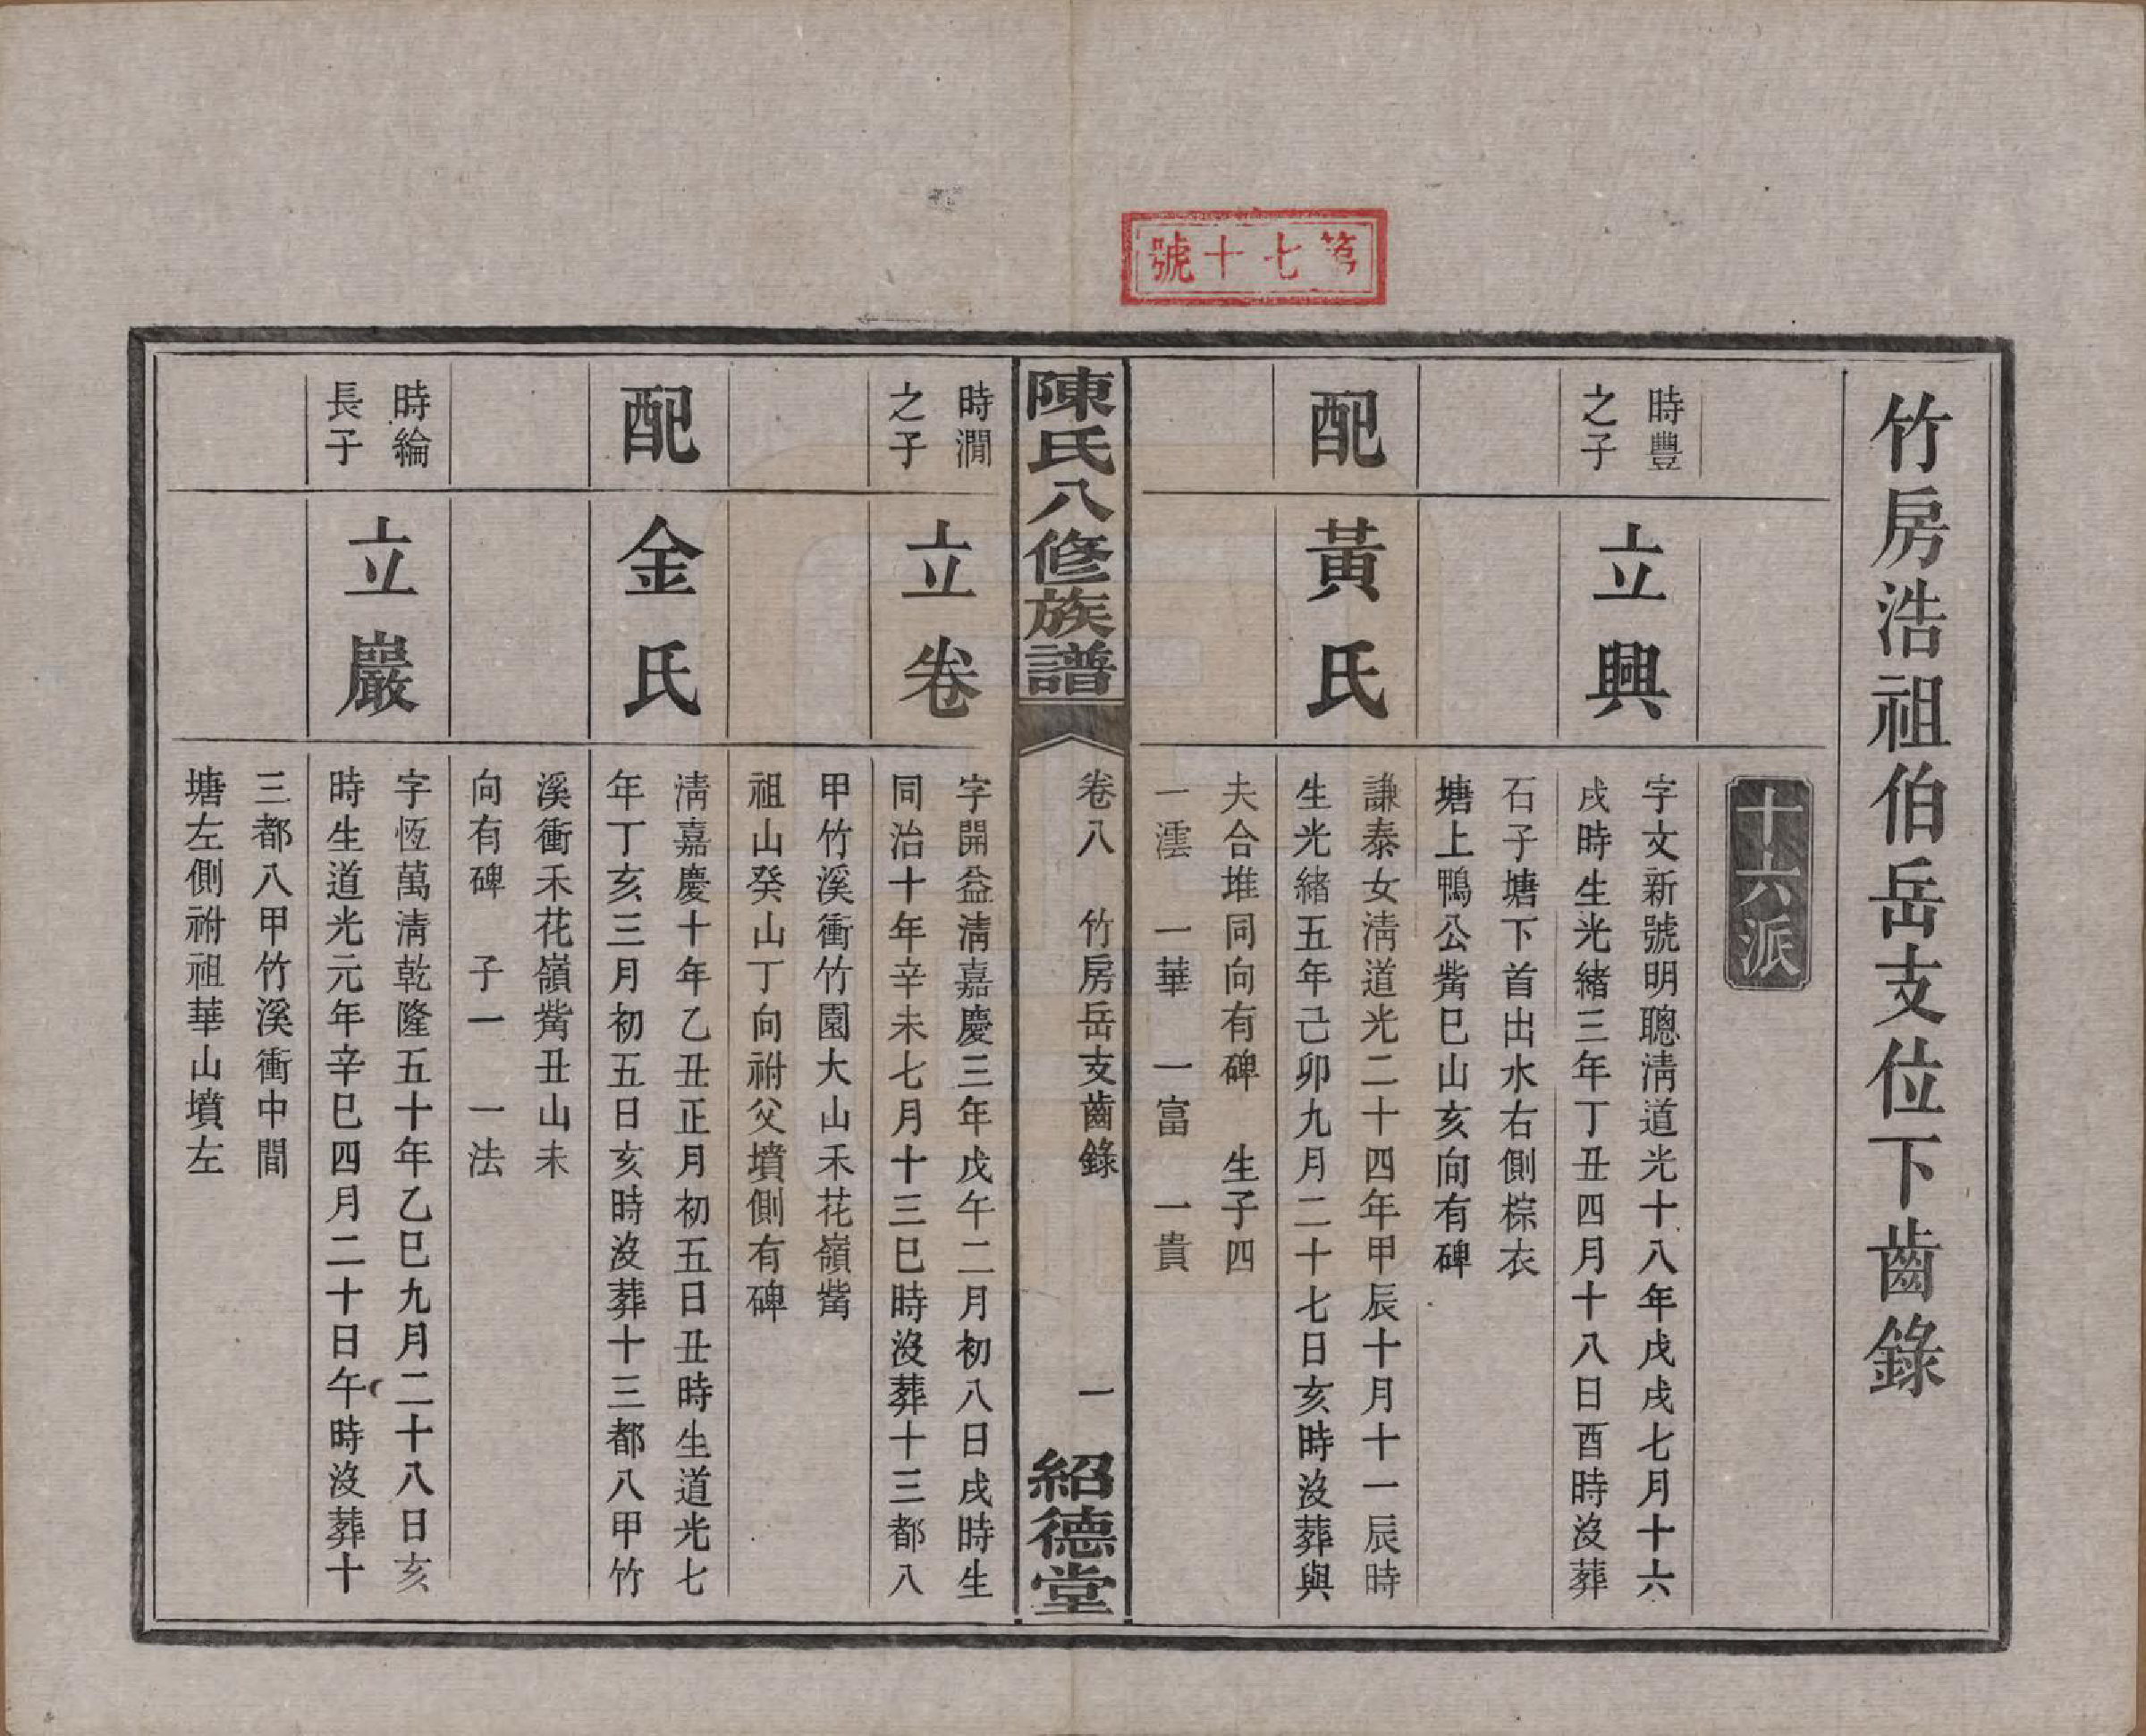 第七十號
竹房浩祖伯岳支位下齒錄
十六派
時豐
之子
立興
字文新號明聰淸道光十八年戊戌七月十六
戌時生光緒三年丁丑四月十八日酉時沒葬
石子塘下首出水右側棕衣
塘上鴨公觜巳山亥向有碑
配
黃氏
謙泰女淸道光二十四年甲辰十月十一辰時
生光緒五年己卯九月二十七日亥時沒葬與
夫合堆同向有碑 生子四
一澐 一華 一富 一貴
陳氏八修族譜
卷八 竹房岳支齒錄
一
紹德堂
時澗
之子
立卷
字開益淸嘉慶三年戊午二月初八日戌時生
同治十年辛未七月十三巳時沒葬十三都八
甲竹溪衝竹園大山禾花嶺觜
祖山癸山丁向祔父墳側有碑
配
金氏
淸嘉慶十年乙丑正月初五日丑時生道光七
年丁亥三月初五日亥時沒葬十三都八甲竹
溪衝禾花嶺觜丑山未
向有碑 子一 一法
時綸
長子
立巖
字恆萬淸乾隆五十年乙巳九月二十八日亥
時生道光元年辛巳四月二十日午時沒葬十
三都八甲竹溪衝中間
塘左側祔祖華山墳左